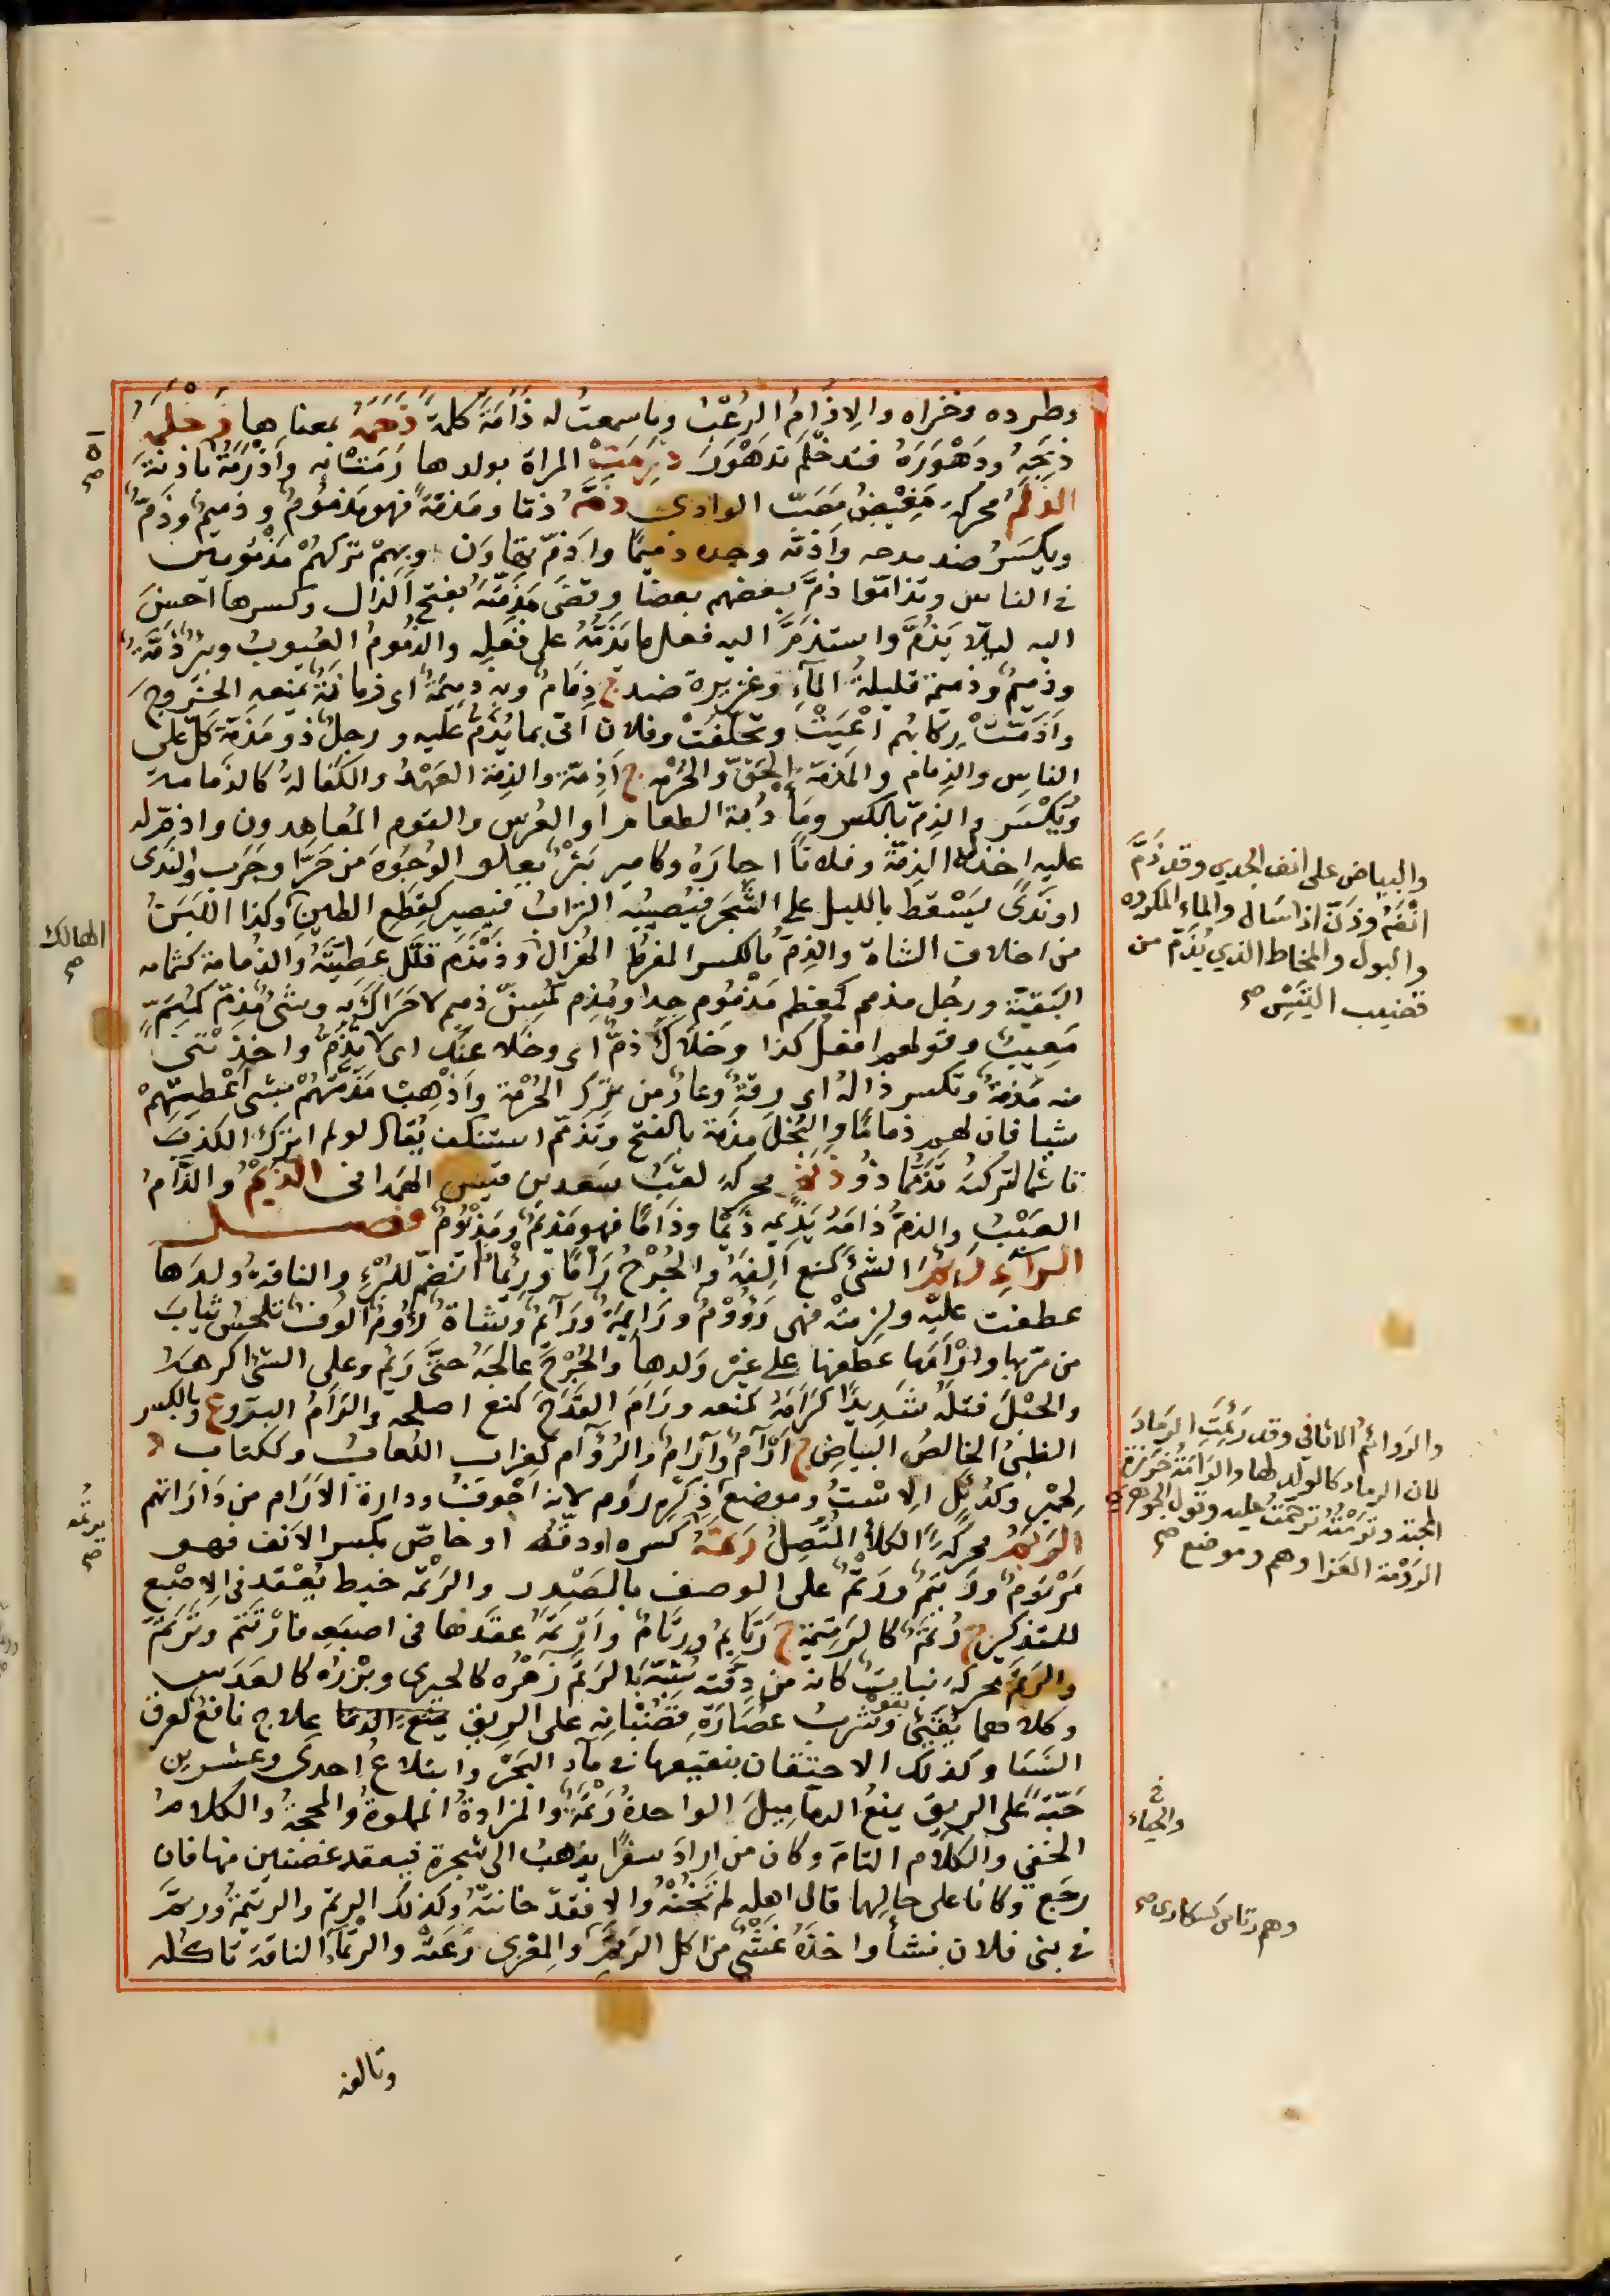 وطرده وخزاه والإذآم الرعب وما سمعت له ذأمة كلمة ذحمه بمعناها ذحلمه
ذبحه ودهوره فتذحلم تدهور ذرمت المرأة بولدها رمت به وأذرمة بأذنة
الذلم محركة مغيض مصب الوادي ذمه ذما ومذمة فهو مذموم وذميم وذم
ويكسر ضد مدحه وأذمه وجده ذميما وأذم تهاون وبهم تركهم مذمومين
في الناس وتذاموا ذم بعضهم بعضا وقضى مذمته بفتح الذال وكسرها أحسن
اليه ليلا يذم واستذم اليه فعل ما يذمه على فعله والذموم العيوب وبئر ذمة
وذميم وذميمة قليلة المآء وغزيرة ضد ج ذمام وبه ذميمة اي زمانة تمنعه الخروج
وأذمت ركابهم أعيت وتخلفت وفلان اتى بما يذم عليه ورجل ذو مذمة كل على
الناس والذمام والمذمة الحق والحرمة ج أذمة والذمة العهد والكفالة كالذمامة
ويكسر والذم بالكسر ومأدبة الطعام او العرس والقوم المعاهدون واذم له
عليه اخذ له الذمة وفلانا اجاره وكامير بثر يعلو الوجوه من حر او جرب والندى
او ندى يسقط بالليل على الشجر فيصيبه التراب فيصير كقطع الطين وكذا اللبن
من اخلاف الشاة والذم بالكسر المفرط الهزال وذمذم قلل عطيته والذمامة كثمامة
البقية ورجل مذمم كمعظم مذموم جدا ومذم كمسن ذميم لا حراك به وشئ مذم كمتم
معيب وقولهم افعل كذا وخلاك ذم اي وخلا عنك اى لا تذم واخذتني
منه مذمة وتكسر ذاله اي رقة وعار من ترك الحرمة وأذهب مذمتهم بشئ أعطهم
شيا فان لهم ذماما والبخل مذمة بالفتح وتذمم استنكف يقال لو لم اترك الكذب
تاثما لتركته تذمما ذو ذلم محركة لقب سعد بن قيس الهمداني الذيم والذام
العيب والذم ذامه يذيمه ذيما وذاما فهو مذيم ومذيوم فصل
الرآء رئم الشئ كسمع ألفه والجرح رأما ورئمانا انضم للبرء والناقة ولدها
عطفت عليه ولزمته فهى رؤوم ورائمة ورآئم وشاة رؤوم ألوف تلحس ثياب
من مر بها وارأمها عطفها على غير ولدها والجرح عالجه حتى رئم وعلى الشئ اكرهه
والحبل فتله شديدا كرأمه كمنعه ورأم القدح كمنع اصلحه والرأم البو وع وبالكسر
الظبى الخالص البياض ج أرآم وآرام والرؤام كغراب اللعاب وككتاب د
لحمير وكدئل الاست وموضع ودارة الأرآم من داراتهم
الرتم محركة الكلأ المتصل رتمه كسره او دقه او خاص بكسر الانف فهو
مرتوم ورتيم ورتم على الوصف بالمصدر والرتمة خيط يعقد في الاصبع
للتذكير ج رتم كالرتيمة ج رتايم ورتام وأرتمه عقدها في اصبعه فارتتم وترتم
والرتم محركة نبات كانه من دقته شبه بالرتم زهره كالخيري وبزره كالعدس
وكلاهما يقيئ بقوة وشرب عصارة قضبانه على الريق علاج نافع لعرق
النسا وكذلك الاحتقان بنقيعها في مآء البحر وابتلاع احدى وعشرين
حبة على الريق يمنع الدماميل الواحدة رتمة والمزادة المملوة والمحجة والكلام
الخفي والكلام التام وكان من اراد سفرا يذهب الى شجرة فيعقد غصنين منها فان
رجع وكانا على حالهما قال اهله لم تخنه والا فقد خانته وكذلك الرتم والرتيمة ورتم
في بني فلان نشأ واخذه غشى من اكل الرتم والمعزى رعته والرتمآء الناقة تاكله
وتالفه
والبياض على انف الجدي وقد ذم
انفه وذن اذا سال والماء المكروه
والبول والمخاط الذي يذم من
قضيب التيس صح
والروائم الاثافي وقد رئمت الرماد
لان الرماد كالولد لها والرأمة خرزة
المحبة وترأمته ترحمت عليه وقول الجوهري
الرؤمة الغرا وهم وموضع صح
والحياء
المهالك
صح